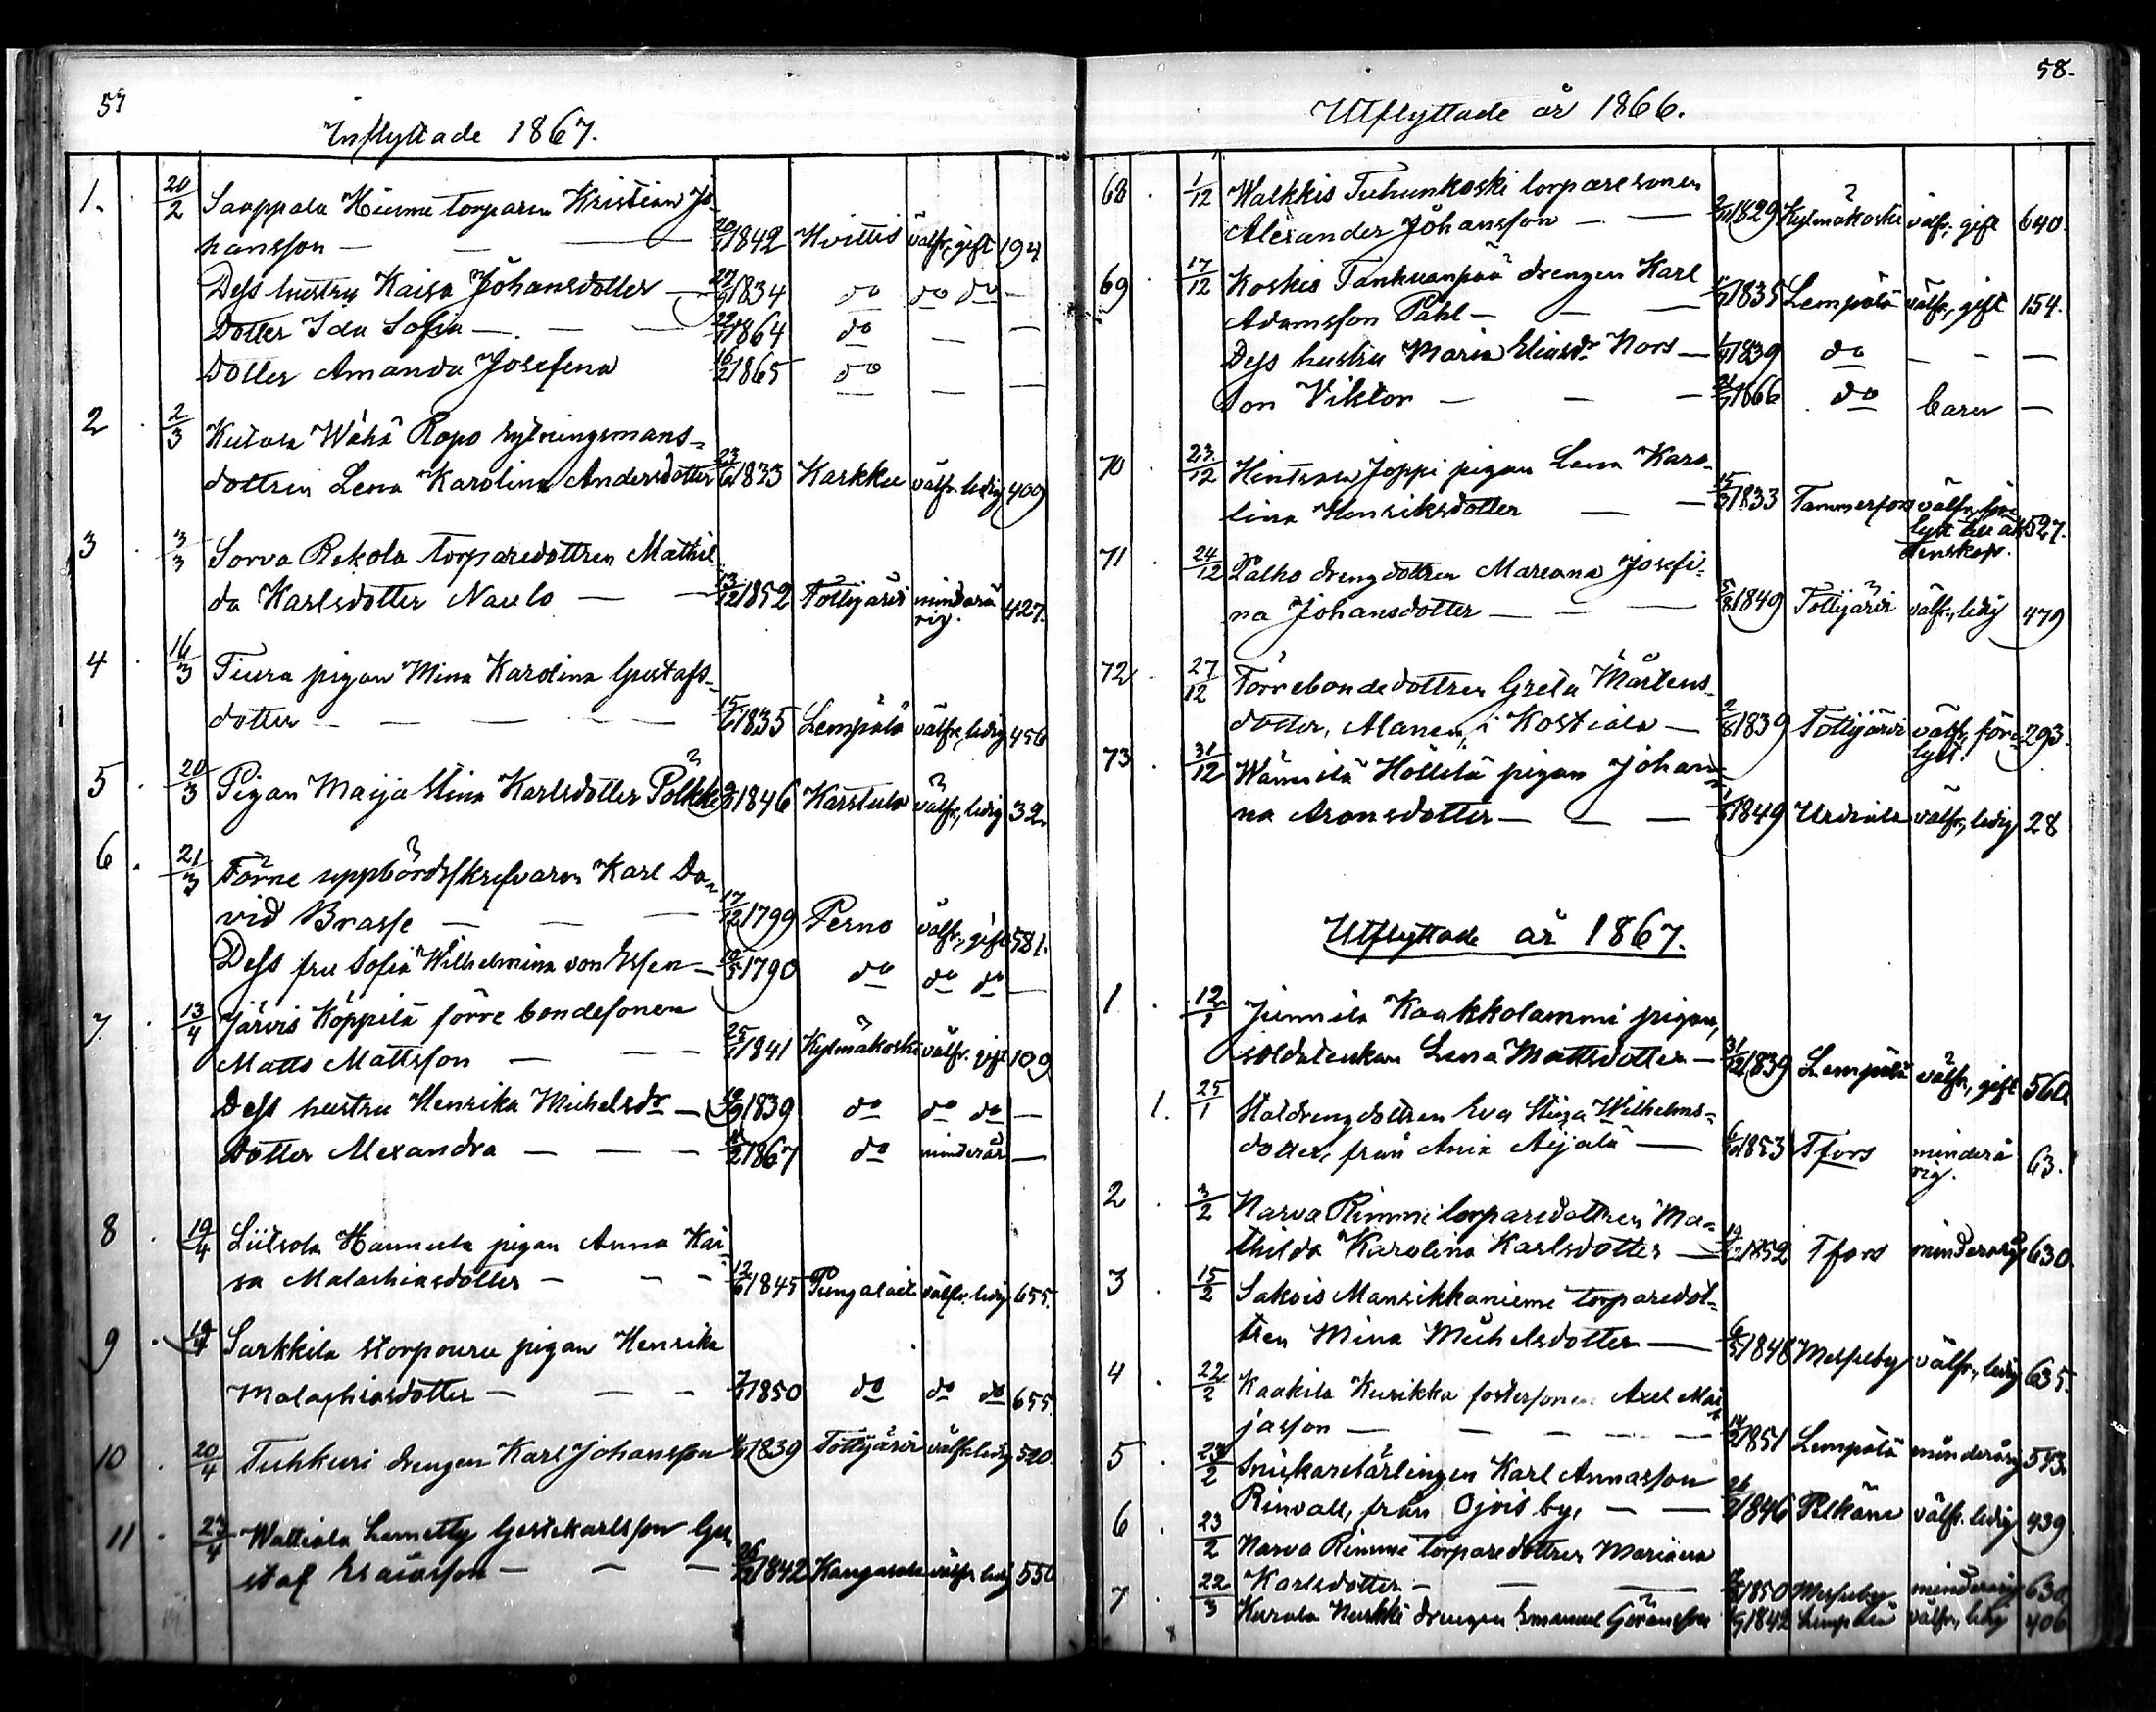 57
Inflyttade 1867.
1. 20/2 Saappala Hiume torparen Kristian Jo-
hansson — 1842 Hvittis välfr. gift 194
Dess hustru Kaisa Johansdotter — 27/9 1834 do do do —
Dotter Ida Sofia — 1864 do — —
Dotter Amanda Josefina 16/2 1865 do — —
2 2/3 Kutala Wähä Ropo hytningsmans-
dottren Lena Karolina Andersdotter 23/6 1833 Karkku välfr. ledig 409
3 3/3 Sorva Rekola torparedottren Mathil
da Karlsdotter Naulo — 13/12 1852 Tottijärvi minderå 427.
rig.
4 16/3 Tiura pigan Mina Karolina Gustafs-
dotter — 1835 Lempälä välfr., ledig 456
5 20/3 Pigan Maija Stina Karlsdotter Pölkki 1846 Karstula välfr., ledig 32.
6 21/3 Förne uppbördsskrefvaren Karl Da-
vid Brasse — 17/12 1799 Perno välfr., gift 581.
Dess fru Sofia Wilhelmina von Essen — 1790 do do do —
7. 13/4 Järvis Köppilä förre bondesonen
Matts Mattsson — 1841 Kylmäkoski välfr. gift 109
Dess hustru Henrika Michelsdr — 1839 do do do —
Dotter Alexandra — 1867 do minderår —
8 19/4 Liitsola Hannula pigan Anna Kai-
sa Malachiasdotter — 1845 Pungalait välfr. ledig 655.
9 19/4 Sarkkila Storpouru pigan Henrika
Malachiasdotter — 1850 do do do 655.
10 20/4 Tuhkuri drengen Karl Johansson 1839 Tottijärvi välfr. ledig 520.
11 23/4 Wattiala Lametty Gestekarlsson Gu-
staf Esaiasson — 1842 Kangasala välfr. ledig 550
58.
Utflyttade år 1866.
68 1/12 Walkkis Tuhunkoski torparesonen
Alexander Johansson — 1829 Kylmäkoski välfr., gift 640.
69 17/12 Koskis Tanhuanpää drengen Karl
Adamsson Påhl — 1835 Lempälä välfr., gift 154.
Dess hustru Maria Eliasdr Nors — 1839 do — — —
Son Viktor — 1866 do barn —
70 23/12 Hintsala Joppi pigan Lena Karo-
lina Henriksdotter — 15/3 1833 Tammerfors välfr., för-
lyst till äk 527.
tenskap.
71 24/12 Palho drengdottren Mareana Josefi-
na Johansdotter — 1849 Tottijärvi välfr., ledig 479
72 27/12 Förre bondedottren Greta Mårtens-
dotter, Manen, i Kostiala — 1839 Tottijärvi välfr., för- 293.
lyst.
73 31/12 Wännilä Höllilä pigan Johan-
na Aronsdotter — 1849 Urdiala välfr., ledig 28
Utflyttade år 1867.
1 12/1 Junnila Kaakkolammi pigan,
soldatenkan Lena Mattsdotter — 31/12 1839 Lempälä välfr., gift 560
1. 25/1 Staldrengdottren Eva Stina Wilhelms-
dotter, från Ania Äijälä — 1853 Tfors minderå 63.
rig.
2 3/2 Narva Rimmi torparedottren Ma-
thilda Karolina Karlsdotter — 1852 Tfors minderårig 630.
3 15/2 Sakois Mansikkaniemi torparedot-
tren Mina Michelsdotter — 1848 Messuby välfr., ledig 635.
4 22/2 Kaakila Kurikka fostersonen Axel Mai-
jasson — 1851 Lempälä minderårig 573.
5 23/2 Snickarelärlingen Karl Annasson
Rinvall, från Ojois by, — 1846 Pelkäne välfr. ledig 439.
6 23/2 Narva Rimmi torparedottren Mariana
Karlsdotter — 1850 Messuby minderårig 630
7 22/3 Kurala Nurkki drengen Emanuel Göransson 1842 Lempälä välfr., ledig 406